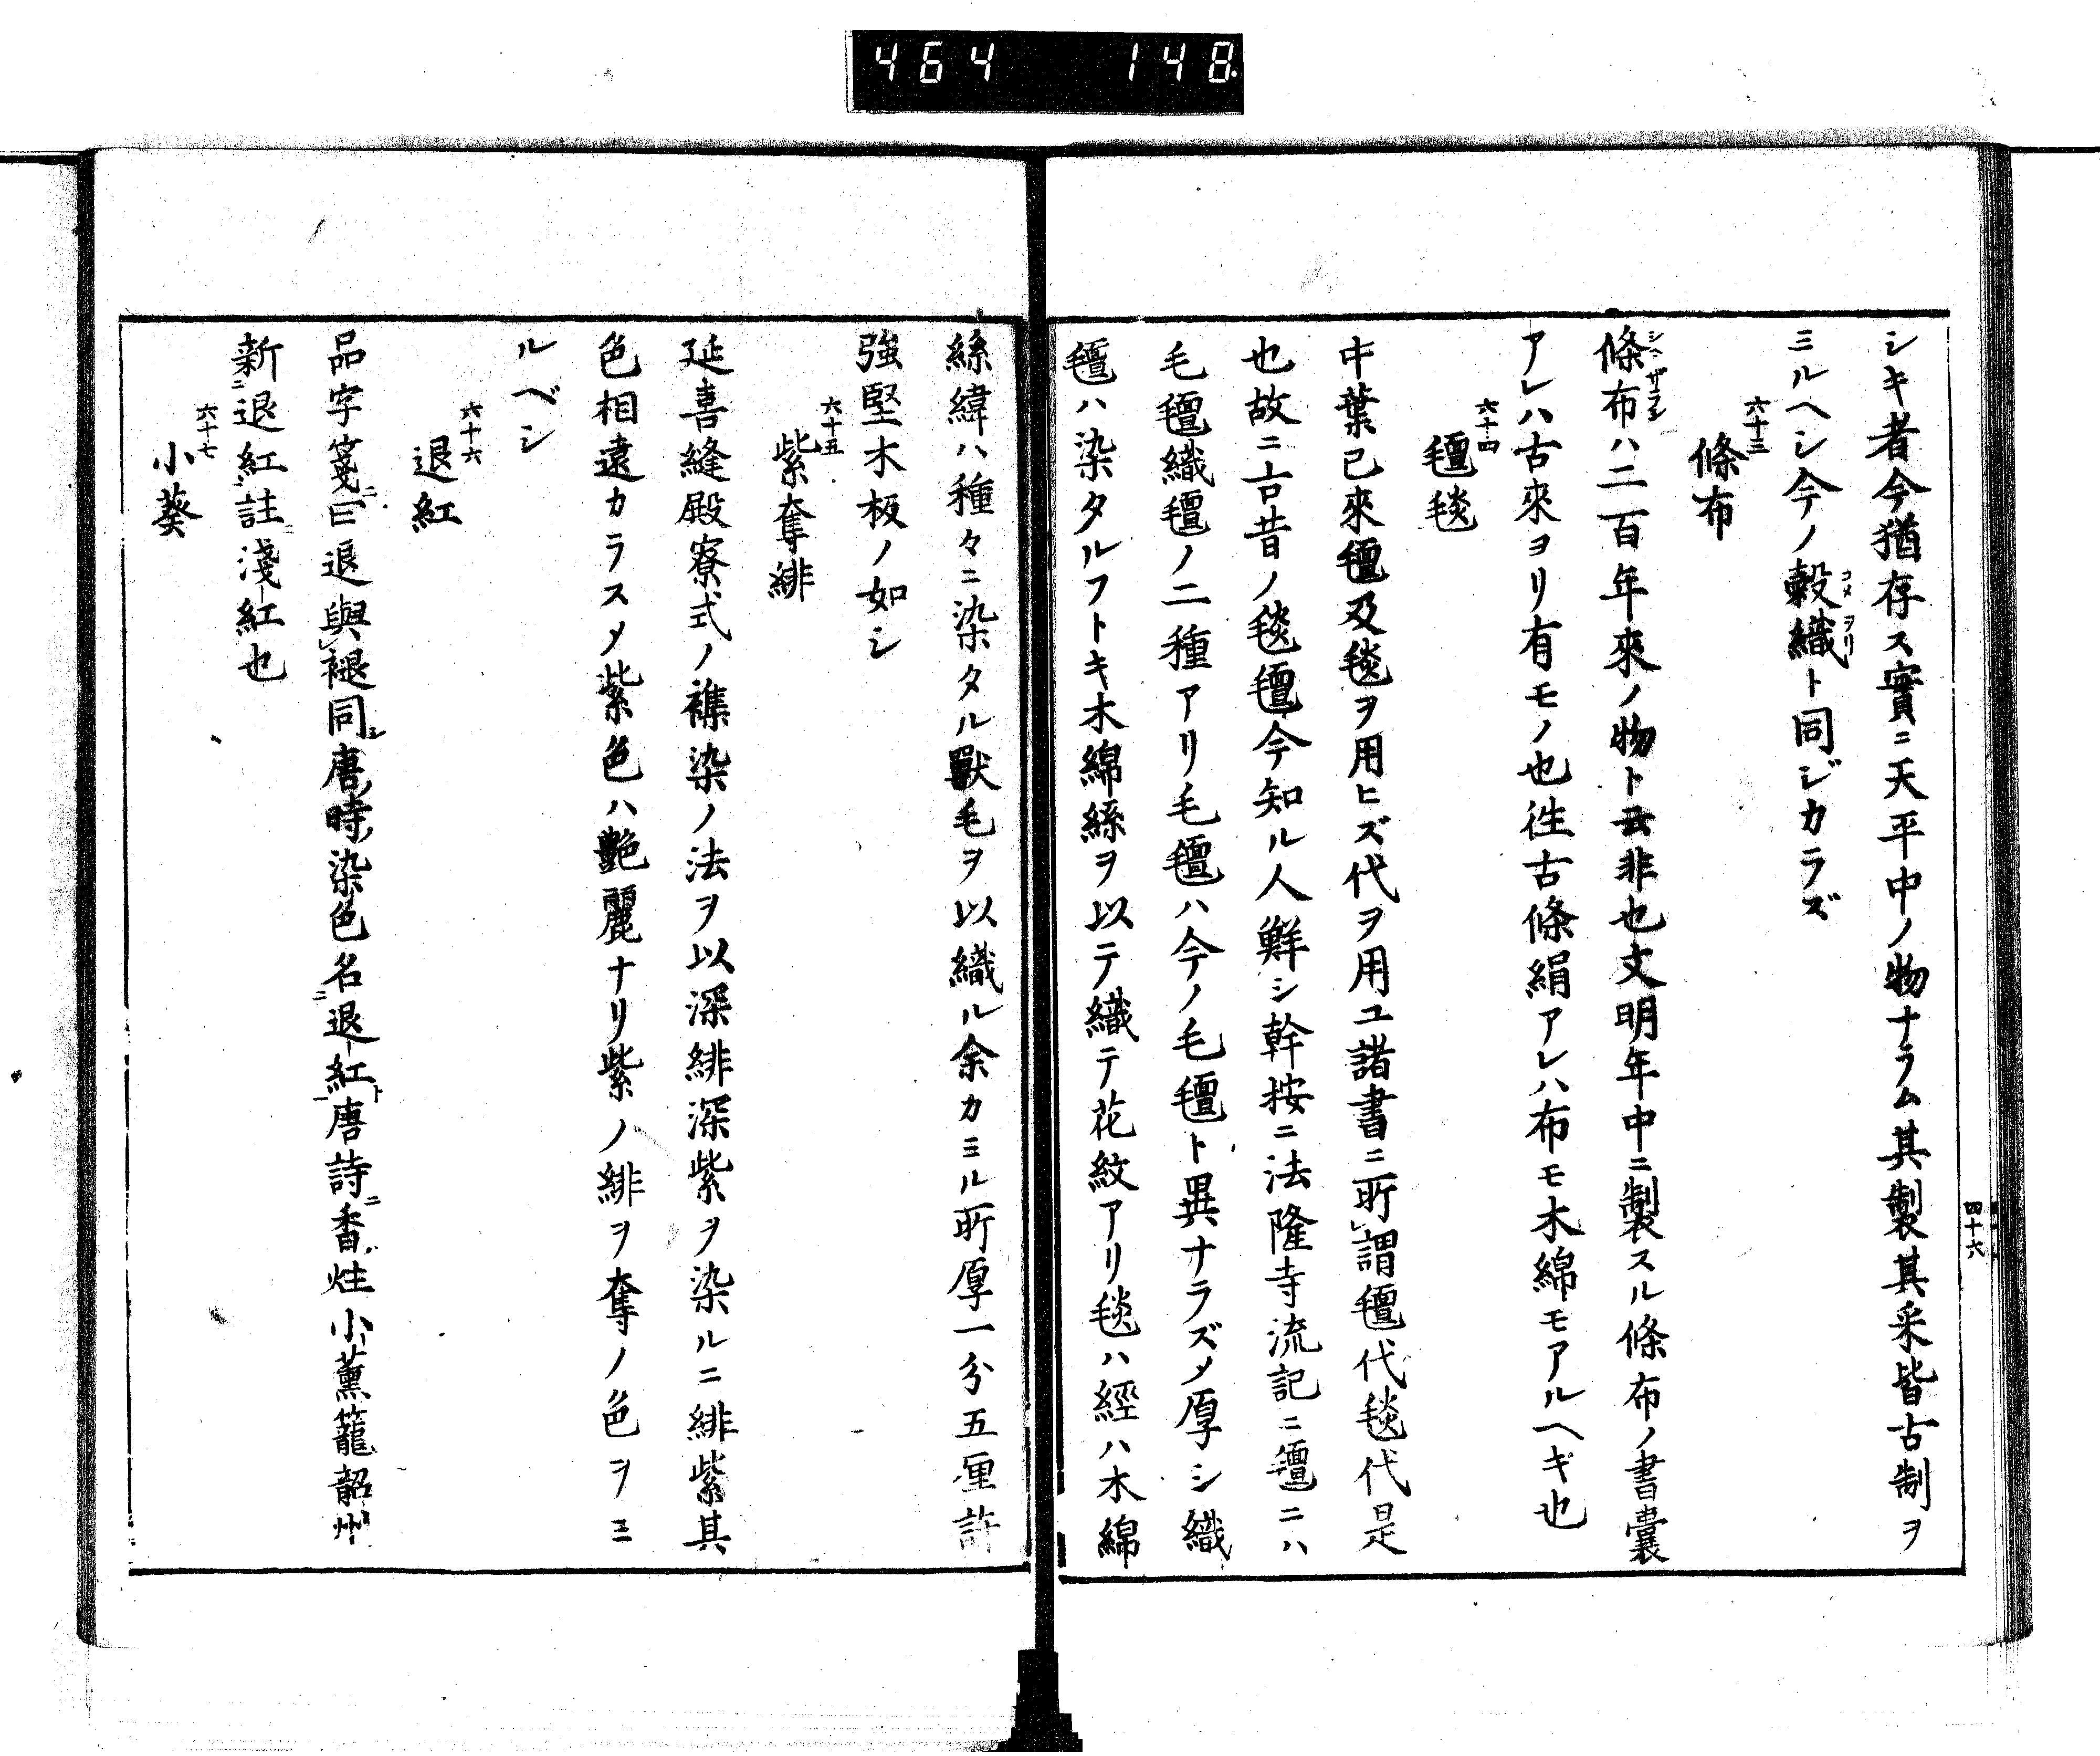 464 148.
四十六
シキ者今猶存ス實ニ天平中ノ物ナラム其製其采皆古制ヲ
ミルヘシ今ノ縠織ト同ジカラズ
コメヲリ
六十三
條布
條布ハ二百年來ノ物ト云非也文明年中ニ製スル條布ノ書囊
アレハ古來ヨリ有モノ也徃古條絹アレハ布モ木綿モアルヘキ也
六十四
氈毯
中葉已來氈及毯ヲ用ヒズ代ヲ用ユ諸書ニ所謂氈代毯代是
也故ニ古昔ノ毯氈今知ル人鮮シ幹按ニ法隆寺流記ニ氈ニハ
毛氈織氈ノ二種アリ毛氈ハ今ノ毛氈ト異ナラズメ厚シ織
氈ハ染タルフトキ木綿絲ヲ以テ織テ花紋アリ毯ハ經ハ木綿
絲緯ハ種々ニ染タル獸毛ヲ以織ル余カミル所厚一分五厘許
強堅木板ノ如シ
六十五
紫奪緋
延喜縫殿寮式ノ襍染ノ法ヲ以深緋深紫ヲ染ルニ緋紫其
色相遠カラスメ紫色ハ艶麗ナリ紫ノ緋ヲ奪ノ色ヲミ
ルベシ
六十六
退紅
品字箋ニ曰退與褪同シ唐ノ時ノ染色名退紅ト唐詩ニ香炷小薰籠韶州
新退紅註淺紅也
六十七
小葵